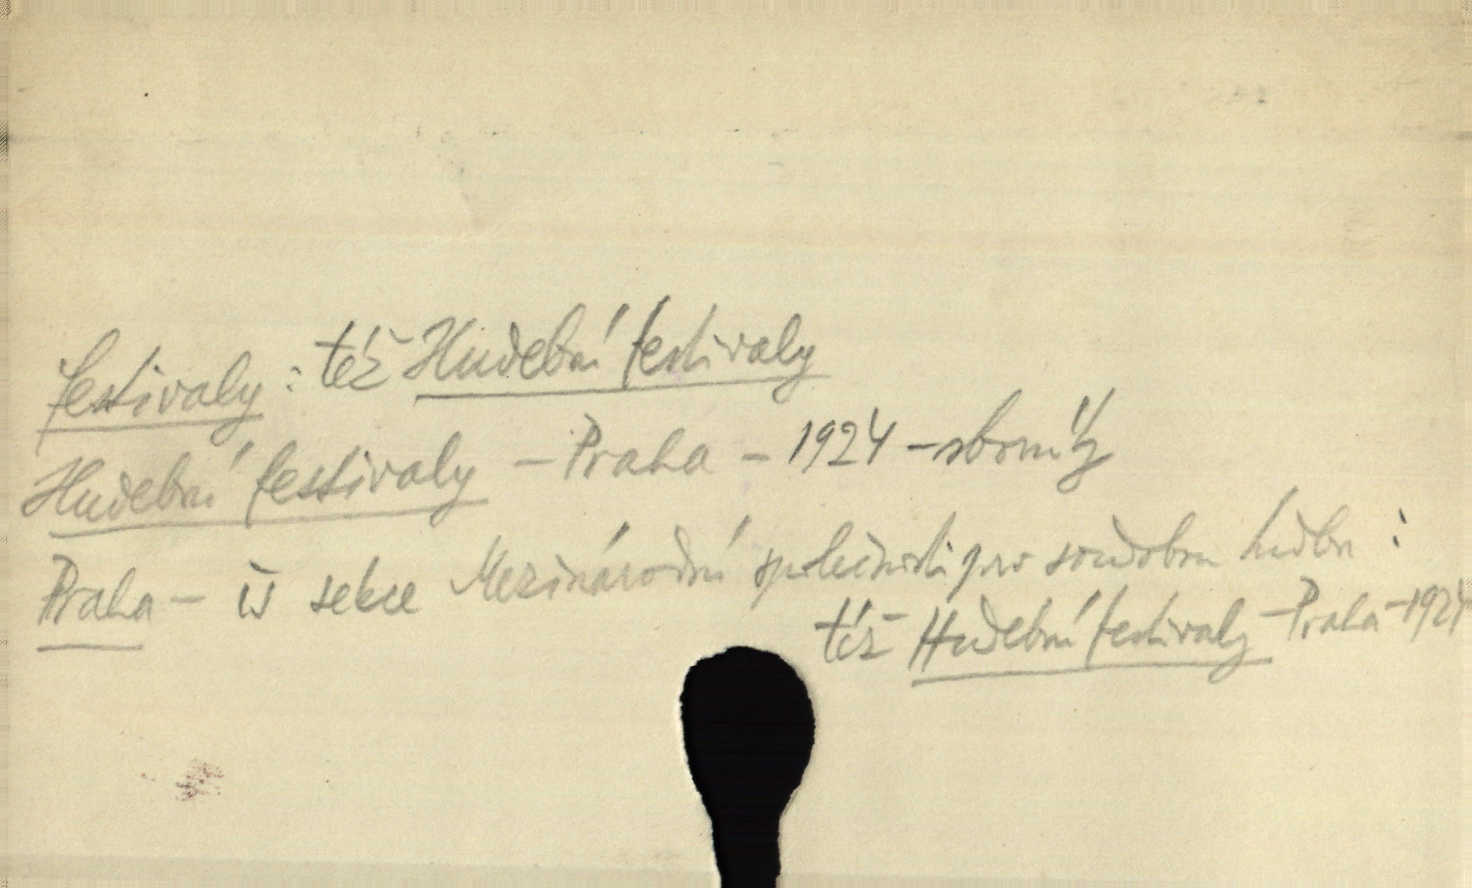 festivaly : též Hudební festivaly
Hudební festivaly - Praha - 1924 - sborník
Praha - čs sekce Mezinárodní společnosti pro soudobou hudbu :
též Hudební festivaly - Praha - 1924